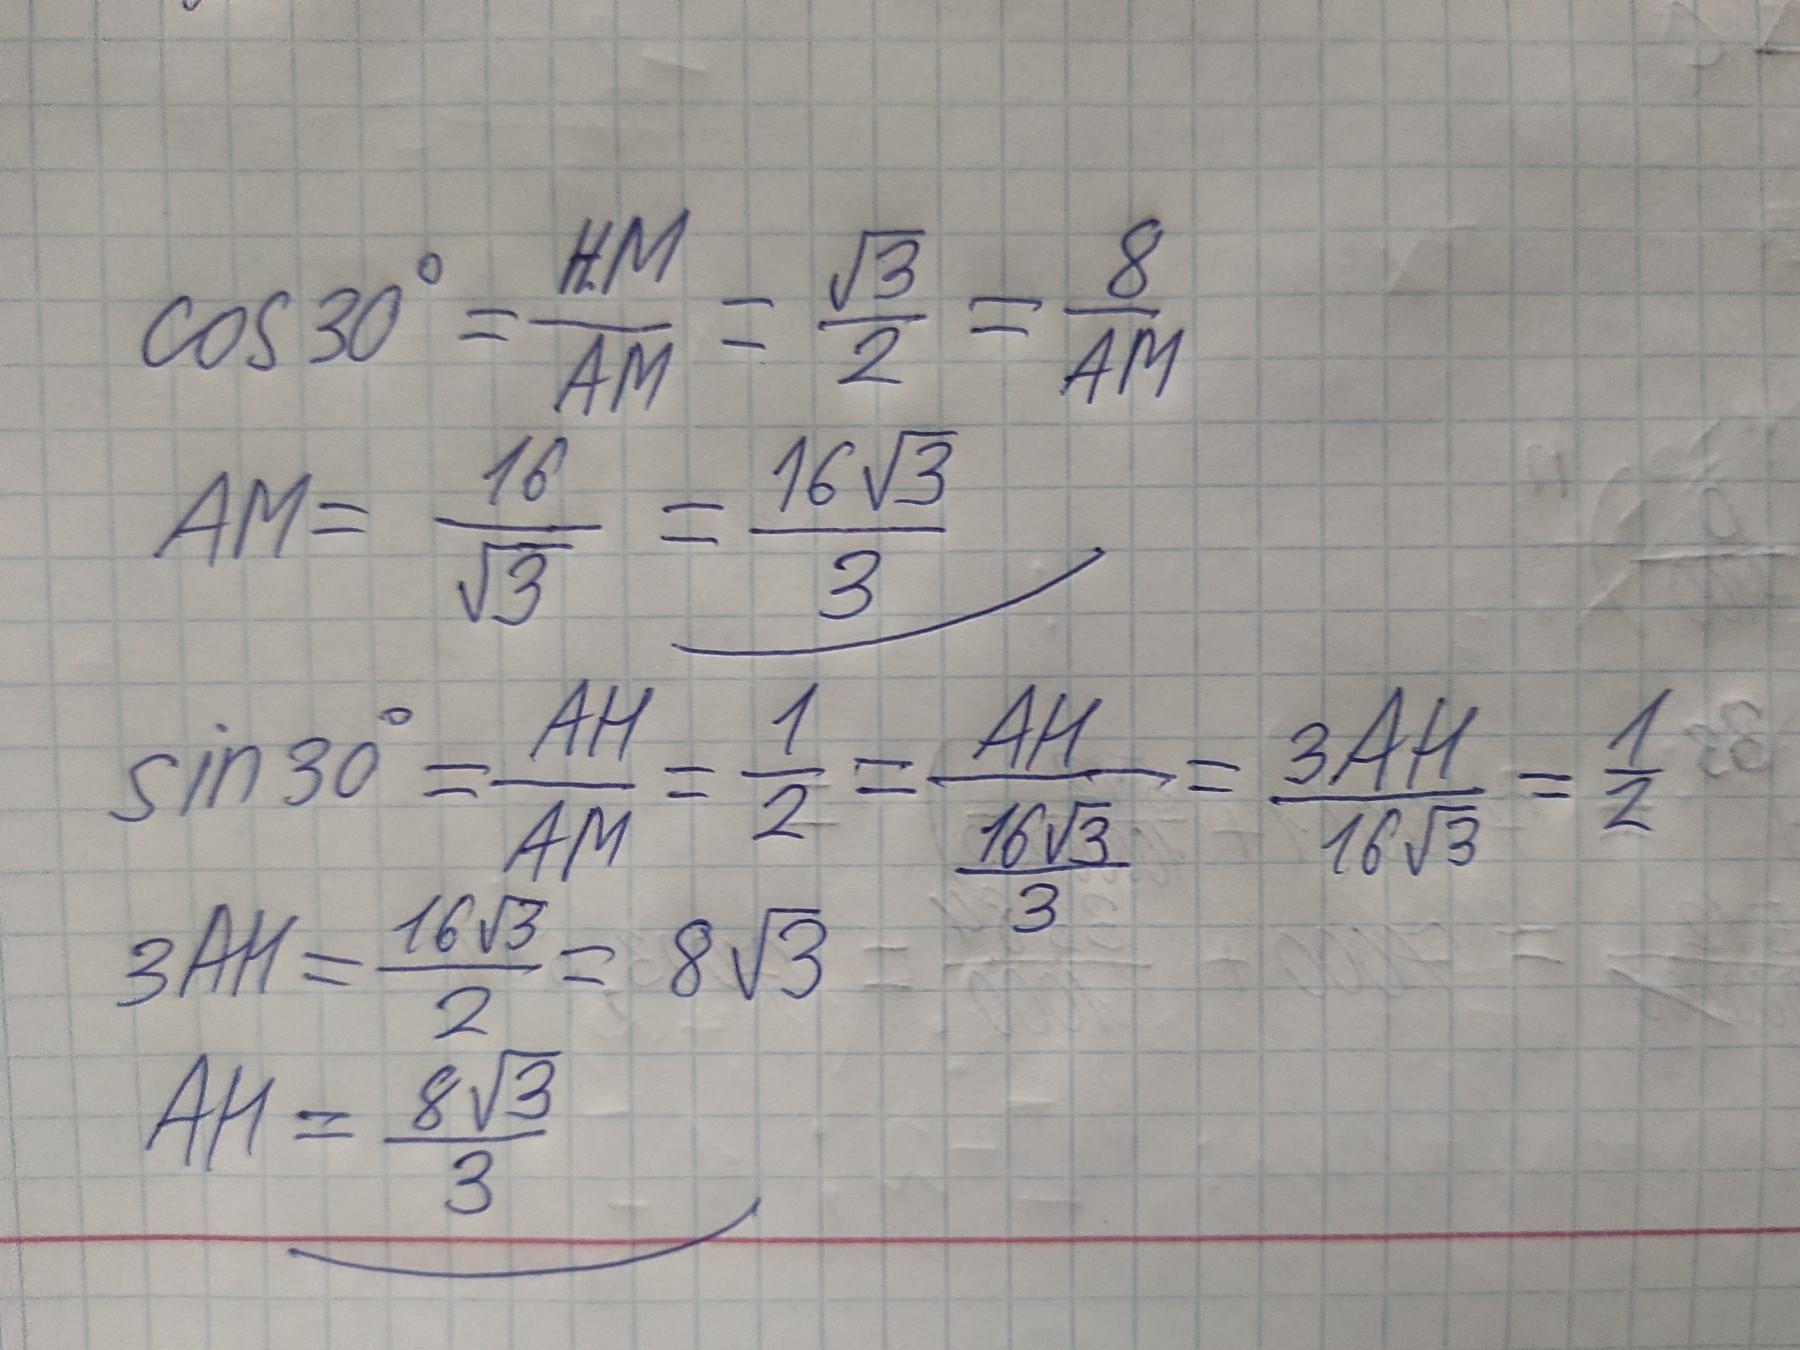 cos 30° = HM/AM = √3/2 = 8/AM
AM = 16/√3 = 16√3/3
sin 30° = AH/AM = 1/2 = AH/(16√3/3) = 3AH/16√3 = 1/2
3AH = 16√3/2 = 8√3
AH = 8√3/3